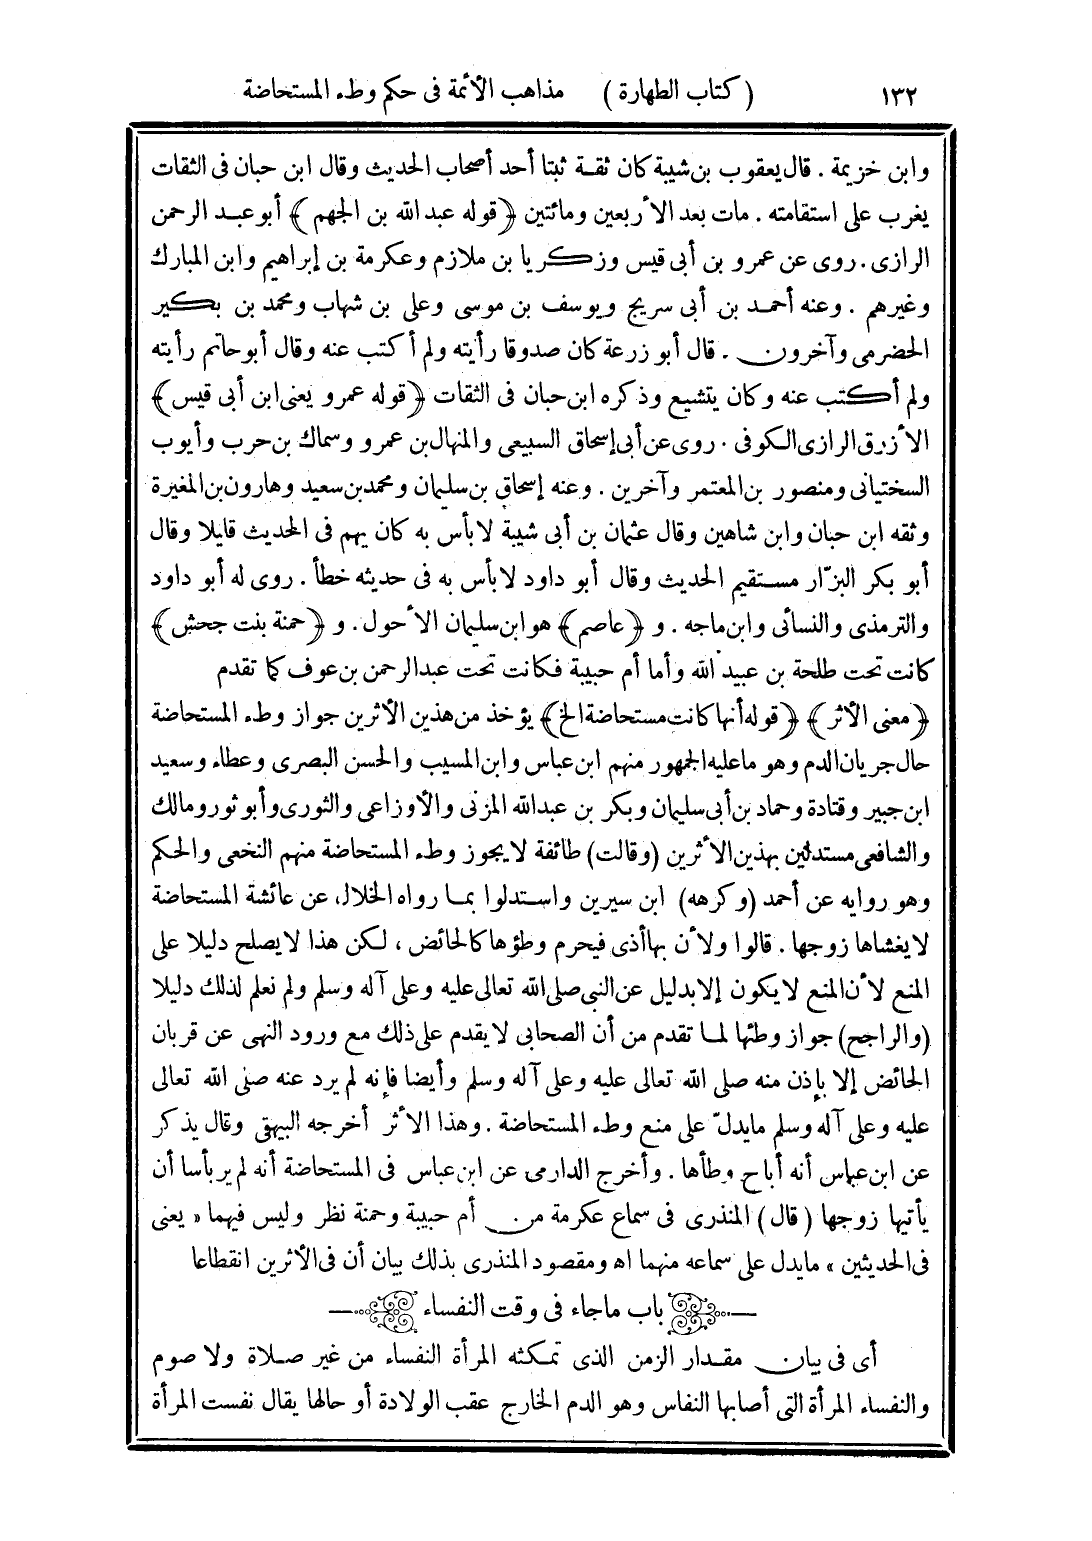 ١٣٢ (كتاب الطهارة) مذاهب الأئمة فى حكم وطء المستحاضة
وابن خزيمة . قال يعقوب بن شيبة كان ثقـة ثبتا أحد أصحاب الحديث وقال ابن حبان فى الثقات
يغرب على استقامته . مات بعد الأربعين ومائتين ﴿قوله عبد الله بن الجهم﴾ أبو عبـد الرحمن
الرازى . روى عن عمرو بن أبى قيس وزكريا بن ملازم وعكرمة بن إبراهيم وابن المبارك
وغيرهم . وعنه أحمـد بن أبى سريج ويوسف بن موسى وعلى بن شهاب ومحمد بن بكير
الحضرمى وآخرون . قال أبو زرعة كان صدوقا رأيته ولم أكتب عنه وقال أبو حاتم رأيته
ولم أكتب عنه وكان يتشيع وذكره ابن حبان فى الثقات ﴿قوله عمرو يعنى ابن أبى قيس﴾
الأزرق الرازى الكوفى . روى عن أبى إسحاق السبيعى والمنهال بن عمرو وسماك بن حرب وأيوب
السختيانى ومنصور بن المعتمر وآخرين . وعنه إسحاق بن سليمان ومحمد بن سعيد وهارون بن المغيرة
وثقه ابن حبان وابن شاهين وقال عثمان بن أبى شيبة لابأس به كان يهم فى الحديث قليلا وقال
أبو بكر البزّار مستقيم الحديث وقال أبو داود لابأس به فى حديثه خطأ . روى له أبو داود
والترمذى والنسائى وابن ماجه . و ﴿عاصم﴾ هو ابن سليمان الأحول . و ﴿حمنة بنت جحش﴾
كانت تحت طلحة بن عبيد الله وأما أم حبيبة فكانت تحت عبد الرحمن بن عوف كما تقدم
﴿معنى الأثر﴾ ﴿قوله أنها كانت مستحاضة الخ﴾ يؤخذ من هذين الأثرين جواز وطء المستحاضة
حال جريان الدم وهو ماعليه الجمهور منهم ابن عباس وابن المسيب والحسن البصرى وعطاء وسعيد
ابن جبير وقتادة وحماد بن أبى سليمان وبكر بن عبدالله المزنى والأوزاعى والثورى وأبو ثور ومالك
والشافعى مستدلين بهذين الأثرين (وقالت) طائفة لايجوز وطء المستحاضة منهم النخعى والحكم
وهو روايه عن أحمد (وكرهه) ابن سيرين واستدلوا بمـا رواه الخلال عن عائشة المستحاضة
لايغشاها زوجها . قالوا ولأن بها أذى فيحرم وطؤها كالحائض ، لكن هذا لايصلح دليلا على
المنع لأن المنع لايكون إلا بدليل عن النبى صلى الله تعالى عليه وعلى آله وسلم ولم نعلم لذلك دليلا
(والراجح) جواز وطئها لمـا تقدم من أن الصحابى لايقدم على ذلك مع ورود النهى عن قربان
الحائض إلا بإذن منه صلى الله تعالى عليه وعلى آله وسلم وأيضا فإنه لم يرد عنه صلى الله تعالى
عليه وعلى آله وسلم مايدلّ على منع وطء المستحاضة . وهذا الأثر أخرجه البيهقى وقال يذكر
عن ابن عباس أنه أباح وطأها . وأخرج الدارمى عن ابن عباس فى المستحاضة أنه لم ير بأسا أن
يأتيها زوجها (قال) المنذرى فى سماع عكرمة من أم حبيبة وحمنة نظر وليس فيهما « يعنى
فى الحديثين » مايدل على سماعه منهما اه ومقصود المنذرى بذلك بيان أن فى الأثرين انقطاعا
باب ماجاء فى وقت النفساء
أى فى بيان مقـدار الزمن الذى تمكثه المرأة النفساء من غير صـلاة ولا صوم
والنفساء المرأة التى أصابها النفاس وهو الدم الخارج عقب الولادة أو حالها يقال نفست المرأة